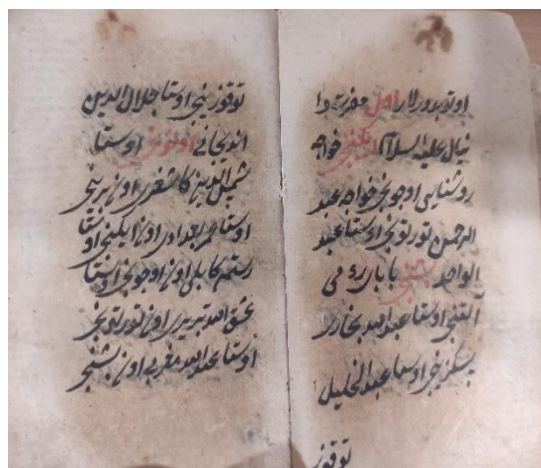 اوتوبدورلار اول حضرت دا
نیال علیه السلام ایکنجی خواجه
روشنایی اوجونجی خواجه عبد
الرحمن تورتونجی اوستا عبد
الواحد بشنجی بابای رومی
آلتنجی اوستا عبدالله بخاری
اوستا عبدالجلیل
توقوز
توقوزینجی اوستا جلال الدین
اندجانی اونونجی اوستا
شمس الدین کاشغری اون برینجی
اوستا عمر بغدادی اون ایکنجی اوستا
رستم کابلی اون اوجونجی اوستا
عشق الله تبریزی اون تورتونجی
اوستا عبدالله مغربی اون بشنجی